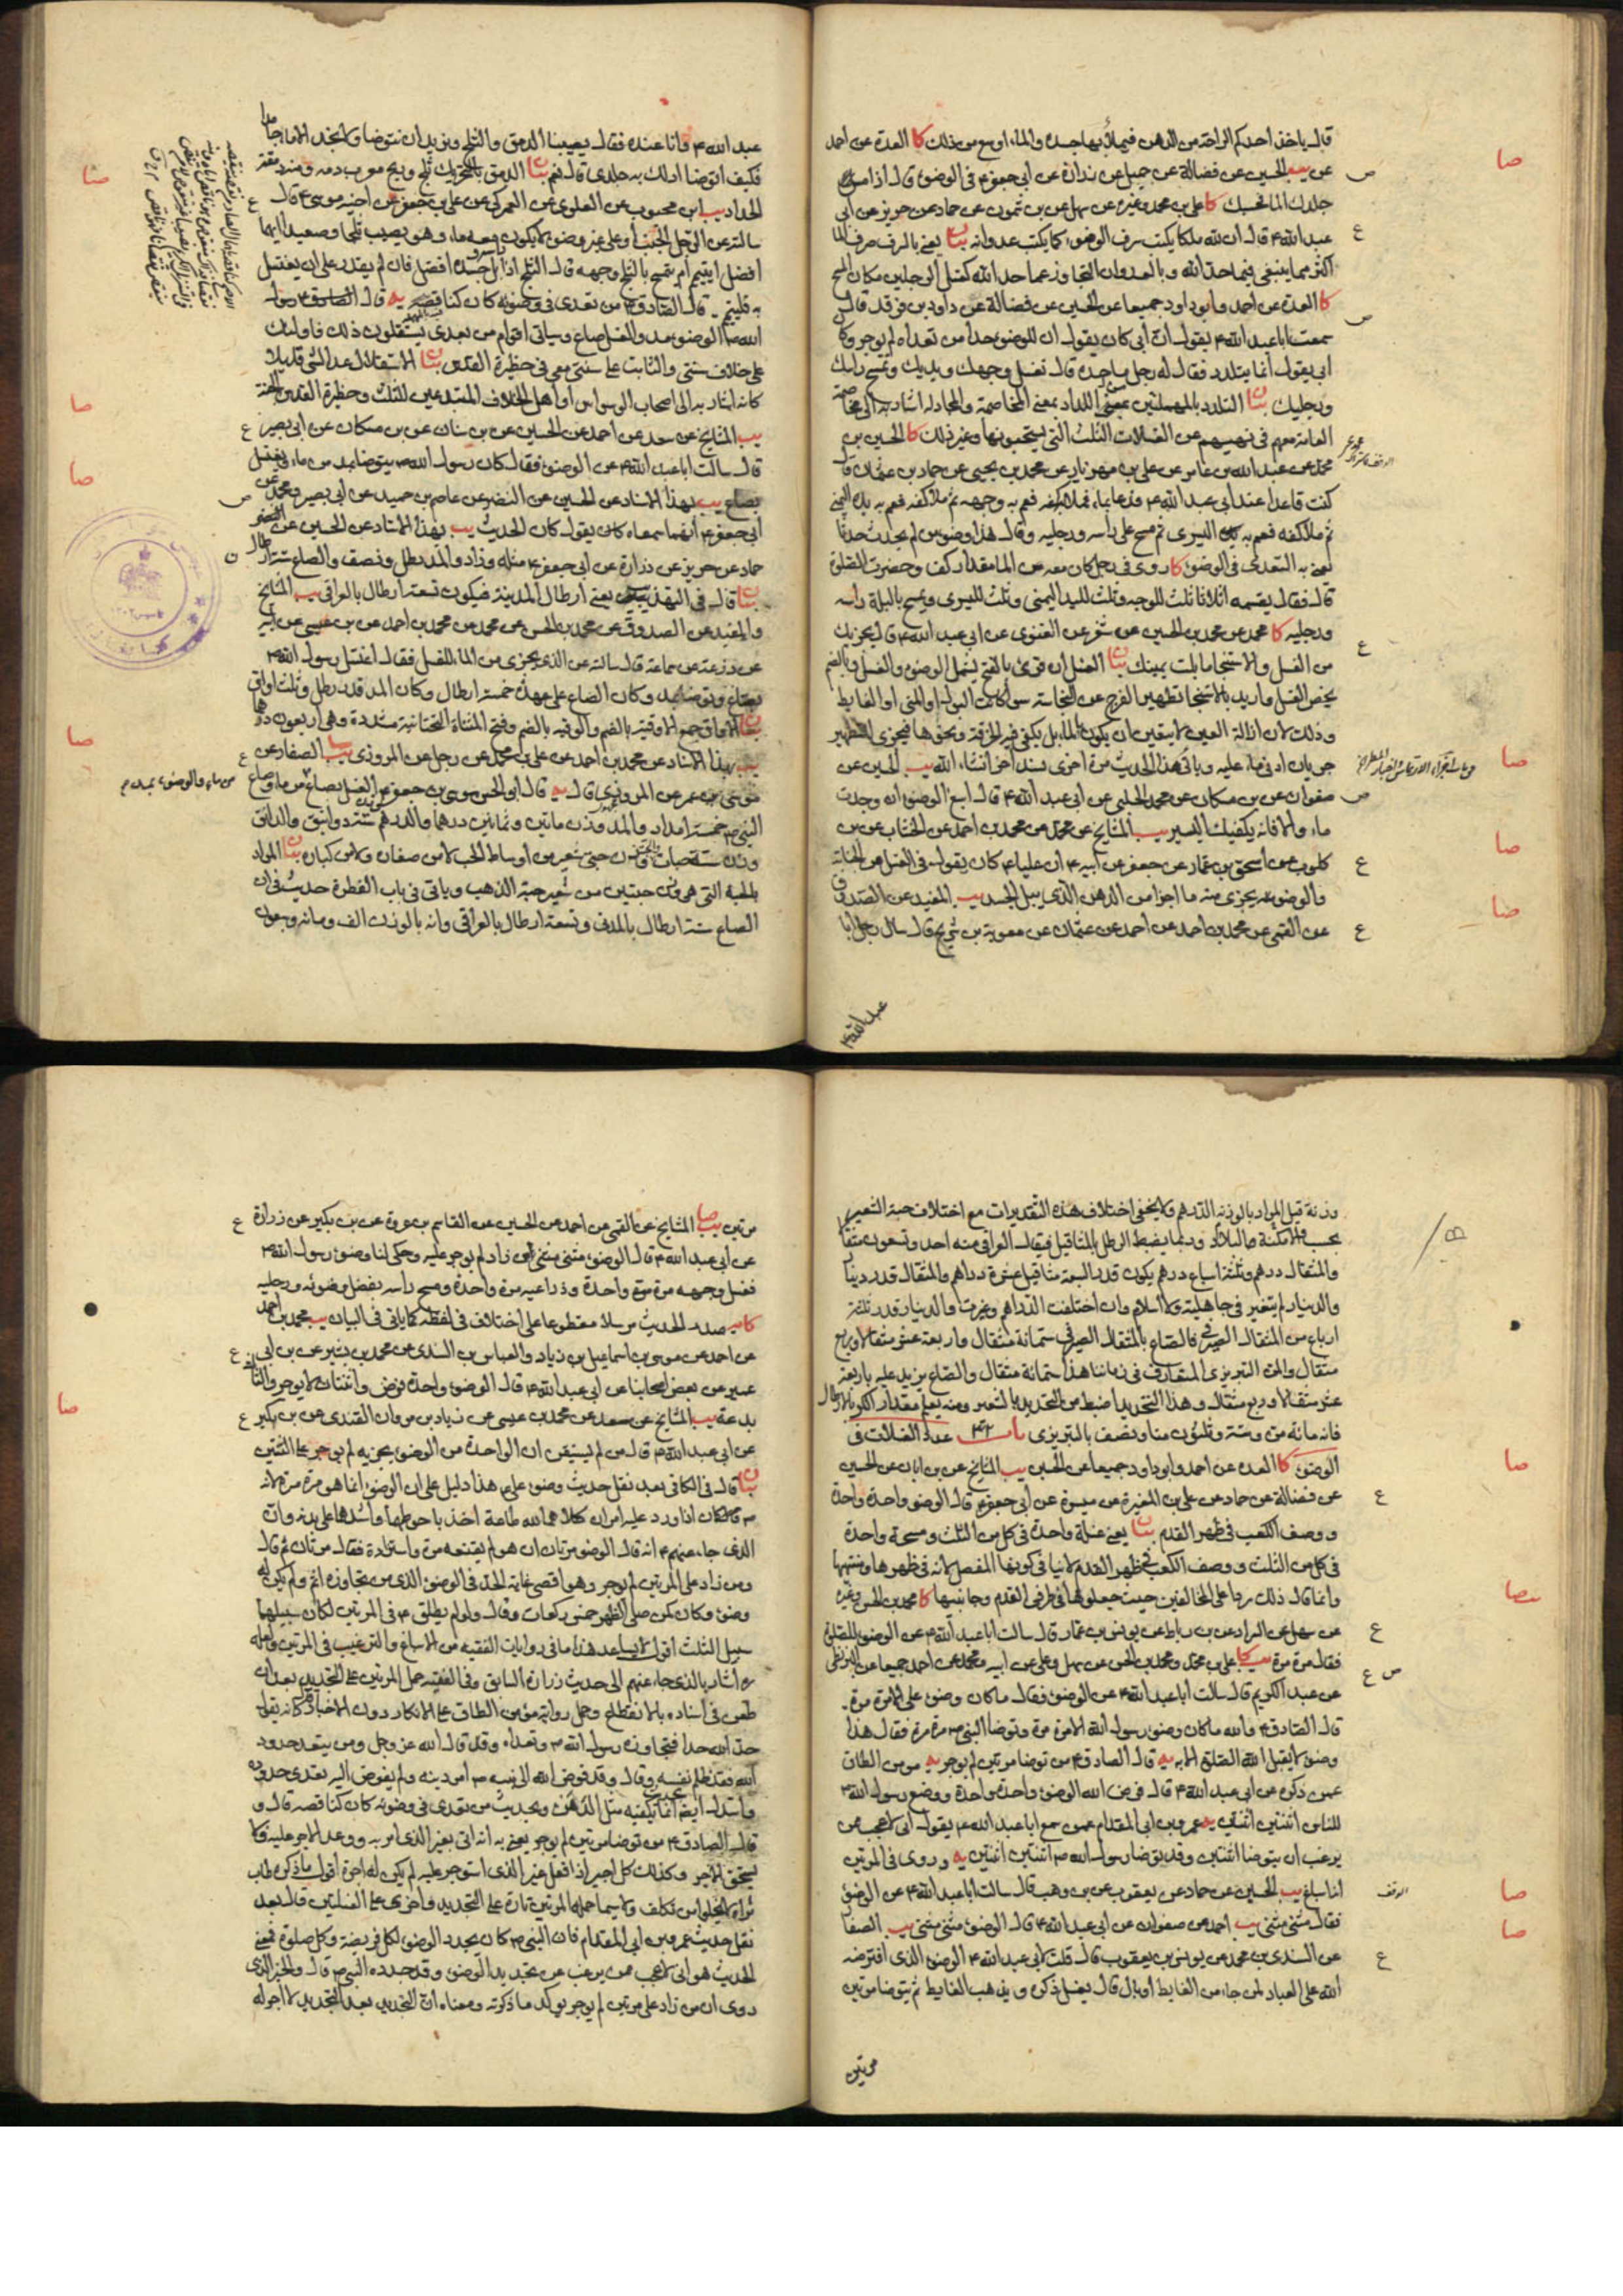 قال ياخذ احدكم الراحة من الدهن فيملأ بها جسده والماء اوسع من ذلك كا العدة عن احمد
عن يب الحسين عن فضالة عن جميل عن زرارة عن أبي جعفر ع في الوضوء قال اذا مس
جلدك الماء فحسبك كا علي بن محمد وغيره عن سهل عن بن شمون عن حماد عن حريز عن أبي
عبد الله ع قال ان لله ملكا يكتب سرف الوضوء كما يكتب عدوانه بيان يعني بالسرف صرف الماء
اكثر مما ينبغي فيما حد الله وبالعدوان التجاوز عما حد الله كغسل الرجلين مكان المسح
كا العدة عن احمد وابو داود جميعا عن الحسين عن فضالة عن داود بن فرقد قال
سمعت ابا عبد الله ع يقول ان أبي كان يقول ان للوضوء حدا من تعداه لم يوجر وكان
ابي يقول انما يتلدد فقال له رجل ما حده قال تغسل وجهك ويديك وتمسح راسك
ورجليك بيان التلدد بالمهملتين بمعنى اللداد بمعنى المخاصمة والمجادلة اشار به الى مخاصمة
العامة معهم في نهيهم عن الغسلات الثلث التي يستحبونها وغير ذلك كا الحسين بن
محمد عن عبد الله بن عامر عن علي بن مهزيار عن محمد بن يحيى عن حماد بن عثمان قال
كنت قاعدا عند ابي عبد الله ع فدعا بماء فملا به كفه فعم به وجهه ثم ملا كفه فعم به يده اليمنى
ثم ملا كفه فعم به يده اليسرى ثم مسح على راسه ورجليه وقال هذا وضوء من لم يحدث حدثا
يعني به التعدي في الوضوء كا روى في رجل كان معه من الماء مقدار كف وحضرت الصلوة
قال فقال يقسمه اثلاثا ثلث للوجه وثلث لليد اليمنى وثلث لليسرى ويمسح بالبلة راسه
ورجليه كا محمد عن محمد بن الحسين عن عن الغنوي عن ابي عبد الله ع قال يجزيك
من الغسل والاستنجاء ما بلت يمينك بيان الغسل ان قرئ بالفتح يشمل الوضوء والغسل وبالضم
يخص الغسل واريد بالاستنجاء تطهير الفرج عن النجاسة سواء كانت البول او المني او الغايط
وذلك لان ازالة العين لا يتعين ان يكون بالماء بل يكفي فيه الخرقة ونحوها فيجزي التطهير
جريان ادنى ماء عليه وياتي هذا الحديث مرة اخرى بسند اخر انشاء الله يب الحسين عن
صفوان عن بن مسكان عن محمد الحلبي عن ابي عبد الله ع قال اسبغ الوضوء ان وجدت
ماء والا فانه يكفيك اليسير يب المشايخ عن محمد عن محمد بن احمد عن الخشاب عن بن
كلوب عن اسحق بن عمار عن جعفر عن ابيه ع ان عليا ع كان يقول في الغسل من الجنابة
والوضوء يجزي منه ما اجزا من الدهن الذي يبل الجسد يب المفيد عن الصدوق
عن القمي عن محمد بن احمد عن احمد عن عثمان عن معوية بن شريح قال سال رجل ابا
عبد الله ع
عبد الله ع وانا عنده فقال يصيبنا الدمق والثلج ونريد ان نتوضا ولا نجد الا ماء جامدا
فكيف اتوضا ادلك به جلدي قال نعم بيان الدمق بالتحريك ثلج وريح معرب دمه
الحداد يب بن محبوب عن العلوي عن العمركي عن علي بن جعفر عن اخيه موسى ع قال
سالته عن الرجل الجنب او على غير وضوء لا يكون معه ماء وهو يصيب ثلجا وصعيدا ايهما
افضل ايتيمم ام يتمسح بالثلج وجهه قال الثلج اذا بل جسده افضل فان لم يقدر على ان يغتسل
به فليتيمم يه قال الصادق ع من تعدى في وضوئه كان كناقضه يه قال الصادق ع رسول
الله ص الوضوء مد والغسل صاع وسياتي اقوام من بعدي يستقلون ذلك فاولئك
على خلاف سنتي والثابت على سنتي معي في حظيرة القدس بيان الاستقلال عد الشئ قليلا
كانه اشار به الى اصحاب الوسواس او اهل الخلاف المبتدعين للثلث وحظيرة القدس الجنة
يب المشايخ عن سعد عن احمد عن الحسين عن بن سنان عن بن مسكان عن ابي بصير
قال سالت ابا عبد الله ع عن الوضوء فقال كان رسول الله ص يتوضا بمد من ماء ويغتسل
بصاع يب بهذا الاسناد عن الحسين عن النضر عن عاصم بن حميد عن ابي بصير ومحمد عن
ابي جعفر ع انهما سمعاه كان يقول كان الحديث يب بهذا الاسناد عن الحسين عن النضر
حماد عن حريز عن زرارة عن ابي جعفر ع مثله وزاد والمد رطل ونصف والصاع ستة ارطال
بيان قال في التهذيب يعني ارطال المدينة فيكون تسعة ارطال بالعراقي يب المشايخ
والمفيد عن الصدوق عن محمد بن الحسن عن محمد عن محمد بن احمد عن بن عيسى عن ابيه
عن زرعة عن سماعة قال سالته عن الذي يجزي من الماء للغسل فقال اغتسل رسول الله ص
بصاع وتوضا بمد وكان الصاع على عهده خمسة ارطال وكان المد قدر رطل وثلث اواق
بيان الاواق جمع الاوقية بالضم والوقيه بالضم وفتح المثناة التحتانية مشددة وهي اربعون درهما
يب بهذا الاسناد عن محمد بن احمد عن علي بن محمد عن رجل عن المروزي يب صا الصفار عن
موسى بن عمر عن المروزي قال يه قال ابو الحسن موسى بن جعفر ع الغسل بصاع من ماء وصاع
النبي ص خمسة امداد والمد وزن مائتين وثمانين درهما والدرهم ستة دوانيق والدانق
وزن ستة حبات والحبة وزن حبتي شعير من اوساط الحب لا من صغاره ولا من كباره بيان المراد
بالحبة التي هي وزن حبتين من شعير حبة الذهب وياتي في باب الفطرة حديث في ان
الصاع ستة ارطال بالمدني وتسعة ارطال بالعراقي وانه بالوزن الف ومائة وسبعون
من ماء والوضوء بمد م
وزنة قيل المراد بالوزنة الدرهم ولا يخفى اختلاف هذه التقديرات مع اختلاف حبة الشعير
بحسب الامكنة والبلاد وربما يضبط الرطل بالمثاقيل فيقال العراقي منه احد وتسعون مثقالا
والمثقال درهم وثلثة اسباع درهم يكون قدر السبعة مثاقيل عشرة دراهم والمثقال قدر دينار
والدينار لم يتغير في جاهلية ولا اسلام وان اختلفت الدراهم وغيرت والدينار قدر ثلثة
ارباع من المثقال الصيرفي فالصاع بالمثقال الصيرفي ستمائة مثقال واربعة عشر مثقالا وربع
مثقال والمن التبريزي المتعارف في زماننا هذا ستمائة مثقال والصاع يزيد عليه باربعة
عشر مثقالا وربع مثقال وهذا التحديد اضبط من التحديد بالشعير ومنه يعلم مقدار الكر بالارطال
فانه مائة من وستة وثلثون منا ونصف بالتبريزي باب ٤٢ عدد الغسلات في
الوضوء كا العدة عن احمد وابو داود جميعا عن الحسين يب المشايخ عن بن ابان عن الحسين
عن فضالة عن حماد عن علي بن المغيرة عن ميسرة عن ابي جعفر ع قال الوضوء واحدة واحدة
ووصف الكعب في ظهر القدم بيان يعني غسلة واحدة في كل من الثلث ومسحة واحدة
في كل من الثلث ووصف الكعب في ظهر القدم لا ينافي كونها المفصل لانه في ظهرها ومنتهاها
وانما قال ذلك ردا على المخالفين حيث جعلوها في طرفي القدم وجانبيها كا محمد بن الحسن وغيره
عن سهل عن السراد عن بن رباط عن يونس بن عمار قال سالت ابا عبد الله ع عن الوضوء للصلوة
فقال مرة مرة يب كا علي بن محمد ومحمد بن الحسن عن سهل وعلي عن ابيه ومحمد عن احمد جميعا عن البزنطي
عن عبد الكريم قال سالت ابا عبد الله ع عن الوضوء فقال ما كان وضوء علي الا مرة مرة
قال الصادق ع والله ما كان وضوء رسول الله الا مرة مرة وتوضا النبي ص مرة مرة فقال هذا
وضوء لا يقبل الله الصلوة الا به يه قال الصادق ع من توضا مرتين لم يوجر يه مومن الطاق
عمن ذكره عن ابي عبد الله ع قال فرض الله الوضوء واحدة واحدة ووضع رسول الله ص
للناس اثنتين اثنتين يه عمرو بن ابي المقدام عمن سمع ابا عبد الله ع يقول اني لاعجب ممن
يرغب ان يتوضا اثنتين اثنتين وقد توضا رسول الله ص اثنتين اثنتين يه وروى في المرتين
انه اسباغ يب الحسين عن حماد عن يعقوب عن بن وهب قال سالت ابا عبد الله ع عن الوضوء
فقال مثنى مثنى يب احمد عن صفوان عن ابي عبد الله ع قال الوضوء مثنى مثنى يب الصفار
عن السندي بن محمد عن يونس بن يعقوب قال قلت لابي عبد الله ع الوضوء الذي افترضه
الله على العباد لمن جاء من الغايط او بال قال يغسل ذكره ويذهب الغايط ثم يتوضا مرتين
مرتين
مرتين يب صا المشايخ عن القمي عن احمد عن الحسين عن القاسم بن عروة عن بن بكير عن زرارة
عن ابي عبد الله ع قال الوضوء مثنى مثنى من زاد لم يوجر عليه وحكى لنا وضوء رسول الله ص
فغسل وجهه مرة واحدة وذراعيه مرة واحدة ومسح راسه بفضل وضوئه ورجليه
كا صدر الحديث مرسلا مقطوعا على اختلاف في لفظه كما ياتي في البيان يب محمد بن احمد
عن احمد عن موسى بن اسماعيل بن زياد والعباس بن السندي عن محمد بن بشير عن بن ابي
عمير عن بعض اصحابنا عن ابي عبد الله ع قال الوضوء واحدة فرض واثنتان لا يوجر والثالث
بدعة يب المشايخ عن سعد عن محمد بن عيسى عن زياد بن مروان القندي عن بن بكير
عن ابي عبد الله ع قال من لم يستيقن ان الواحدة من الوضوء يجزيه لم يوجر على الثنتين
بيان قال في الكافي بعد نقل حديث وضوء علي ع هذا دليل على ان الوضوء انما هو مرة مرة لانه
ع كان اذا ورد عليه امران كلاهما لله طاعة اخذ باحوطهما واشدهما على بدنه وان
الذي جاء عنهم ع انه قال الوضوء مرتان ان هو لم يقنعه مرة واستزاده فقال مرتان ثم قال
ومن زاد على المرتين لم يوجر وهو اقصى غاية الحد في الوضوء الذي من تجاوزه اثم ولم يكن له
وضوء وكان كمن صلى الظهر خمس ركعات وقال ولو لم يطلق ع في المرتين لكان سبيلهما
سبيل الثلث اقول لا يساعد هذا ما في روايات الفقيه من الاسباغ والترغيب في المرتين ولعله
ره اشار بالذي جاء عنهم الى حديث زرارة السابق وفي الفقيه حمل المرتين على التجديد بعد ان
طعن في اسناده بالانقطاع وحمل رواية مؤمن الطاق على الانكار دون الاخبار كانه يقول
حد الله حدا فتجاوزه رسول الله ص وتعداه وقد قال الله عز وجل ومن يتعد حدود
الله فقد ظلم نفسه وقال وقد فوض الله الى نبيه ص امر دينه ولم يفوض اليه تعدي حدوده
واستدل ايضا انما يكفيه مثل الدهن وبحديث من تعدى في وضوئه كان كناقضه قال و
قال الصادق ع من توضا مرتين لم يوجر يعني به انه اتى بغير الذي امر به ووعد الاجر عليه فلا
يستحق الاجر وكذلك كل اجير اذا فعل غير الذي استوجر عليه لم يكن له اجرة اقول ما ذكره طاب
ثراه لا يخلوا من تكلف ولا سيما حمله المرتين تارة على التجديد واخرى على الغسلتين قال بعد
نقل حديث عمرو بن ابي المقدام فان النبي ص كان يجدد الوضوء لكل فريضة وكل صلوة فمعنى
الحديث هو اني لاعجب ممن يرغب عن تجديد الوضوء وقد جدده النبي ص قال والخبر الذي
روى ان من زاد على مرتين لم يوجر يؤكد ما ذكرته ومعناه ان التجديد بعد التجديد لا اجر له